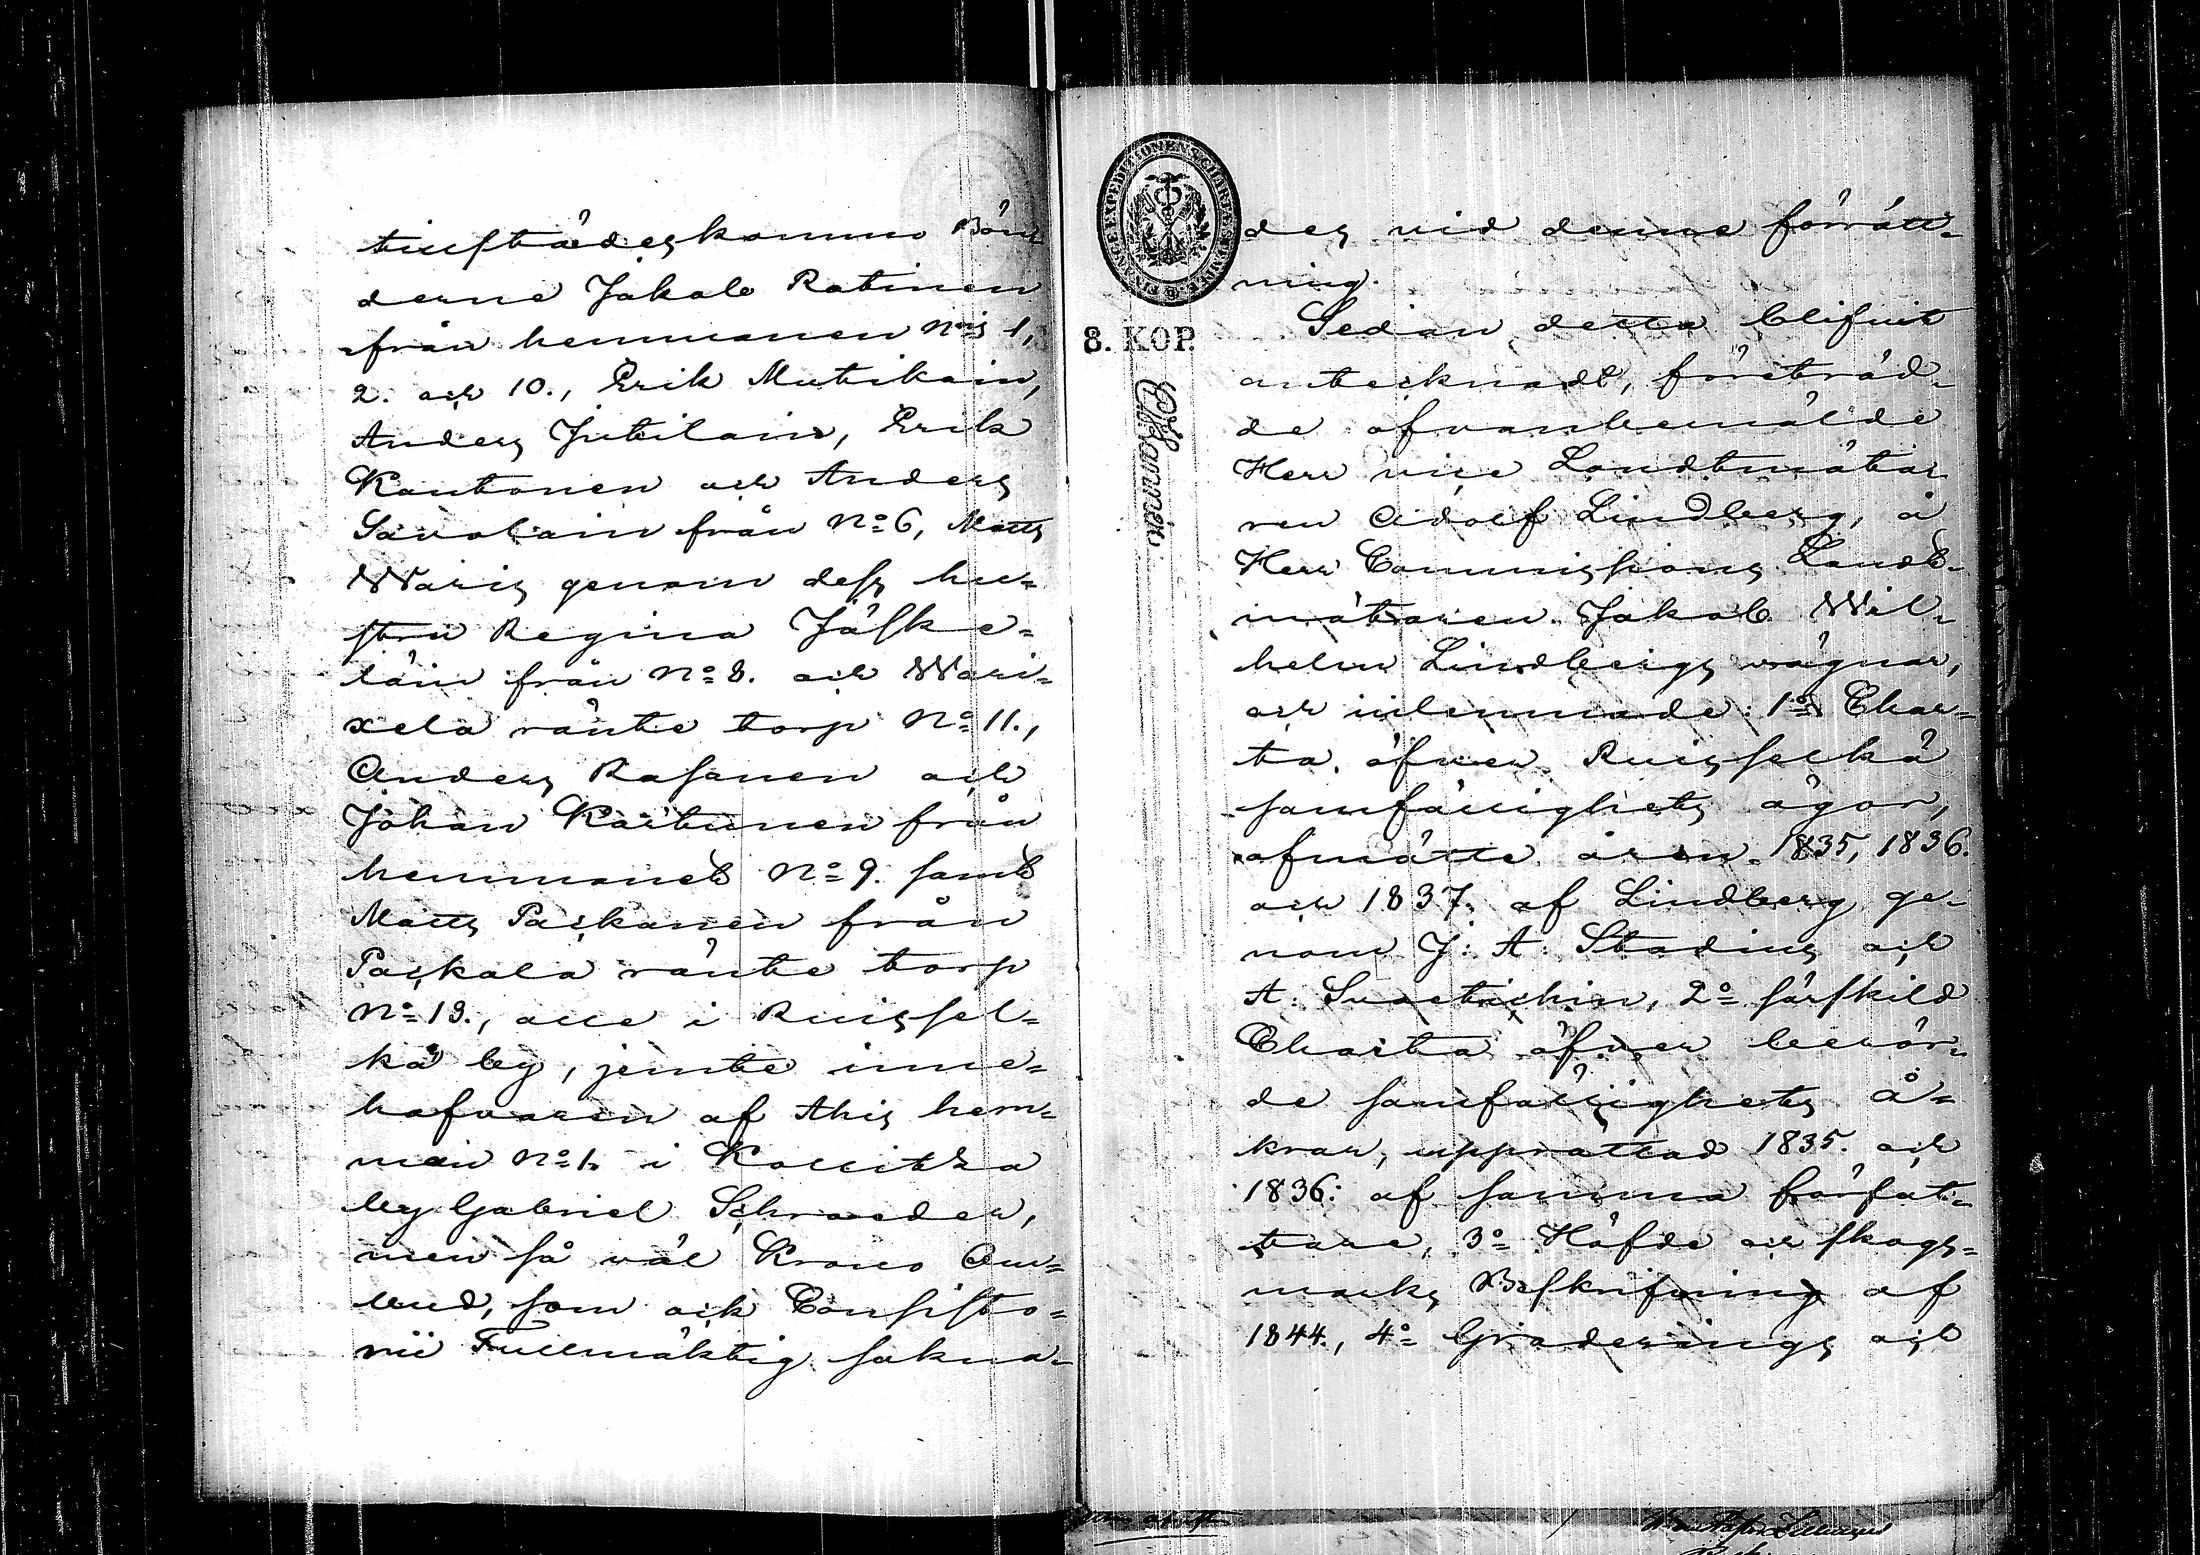 tillstädeskommo Bön-
derne Jakob Ratinen
från hemmanen N:ris 1,
2. och 10., Erik Mutikain,
Anders Jutilain, Erik
Kontonen och Anders
Savolain från N:o 6, Matts
Waris genom dess hu-
stru Regina Jäske-
läin från N:o 8. och Wari-
xela ränte torp N:o 11.,
Anders Rasanen och
Johan Kaitunen från
hemmanet N:o 9. samt
Matts Paskanen från
Paskala ränte torp
N:o 13., alle i Ruissel-
kä by, jemte inne-
hafvaren af Ahis hem-
man N:o 1. i Kollitza
by Gabriel Schrader,
men så väl Krono Om-
bud, som ock Consisto-
rii Fullmäktig sakna-
des vid denna förrätt-
ning.
Sedan detta blifvit
anteknadt, företräd-
de ofvanbemälde
Herr vice Landtmäta-
ren Adolf Lindberg, å
Herr Commissions Landt-
mätaren Jakob Wil-
helm Lindbergs vägnar,
och inlemnade: 1:o Char-
ta öfver Ruisselkä
samfällighets ägor,
afmätte åren 1835, 1836.
och 1837. af Lindberg ge-
nom J: A: Stadius och
A: 2:o särskild
Charta öfver berör-
de samfällighets å-
krar, upprattad 1835. och
1836. af samma förfat-
tare, 3:o Häfde och skogs-
marks Beskrifning af
1844., 4:o Graderings och
FINANCE EXPEDITIONENS CHARTÆ SIGILLATÆ
8. KOP.